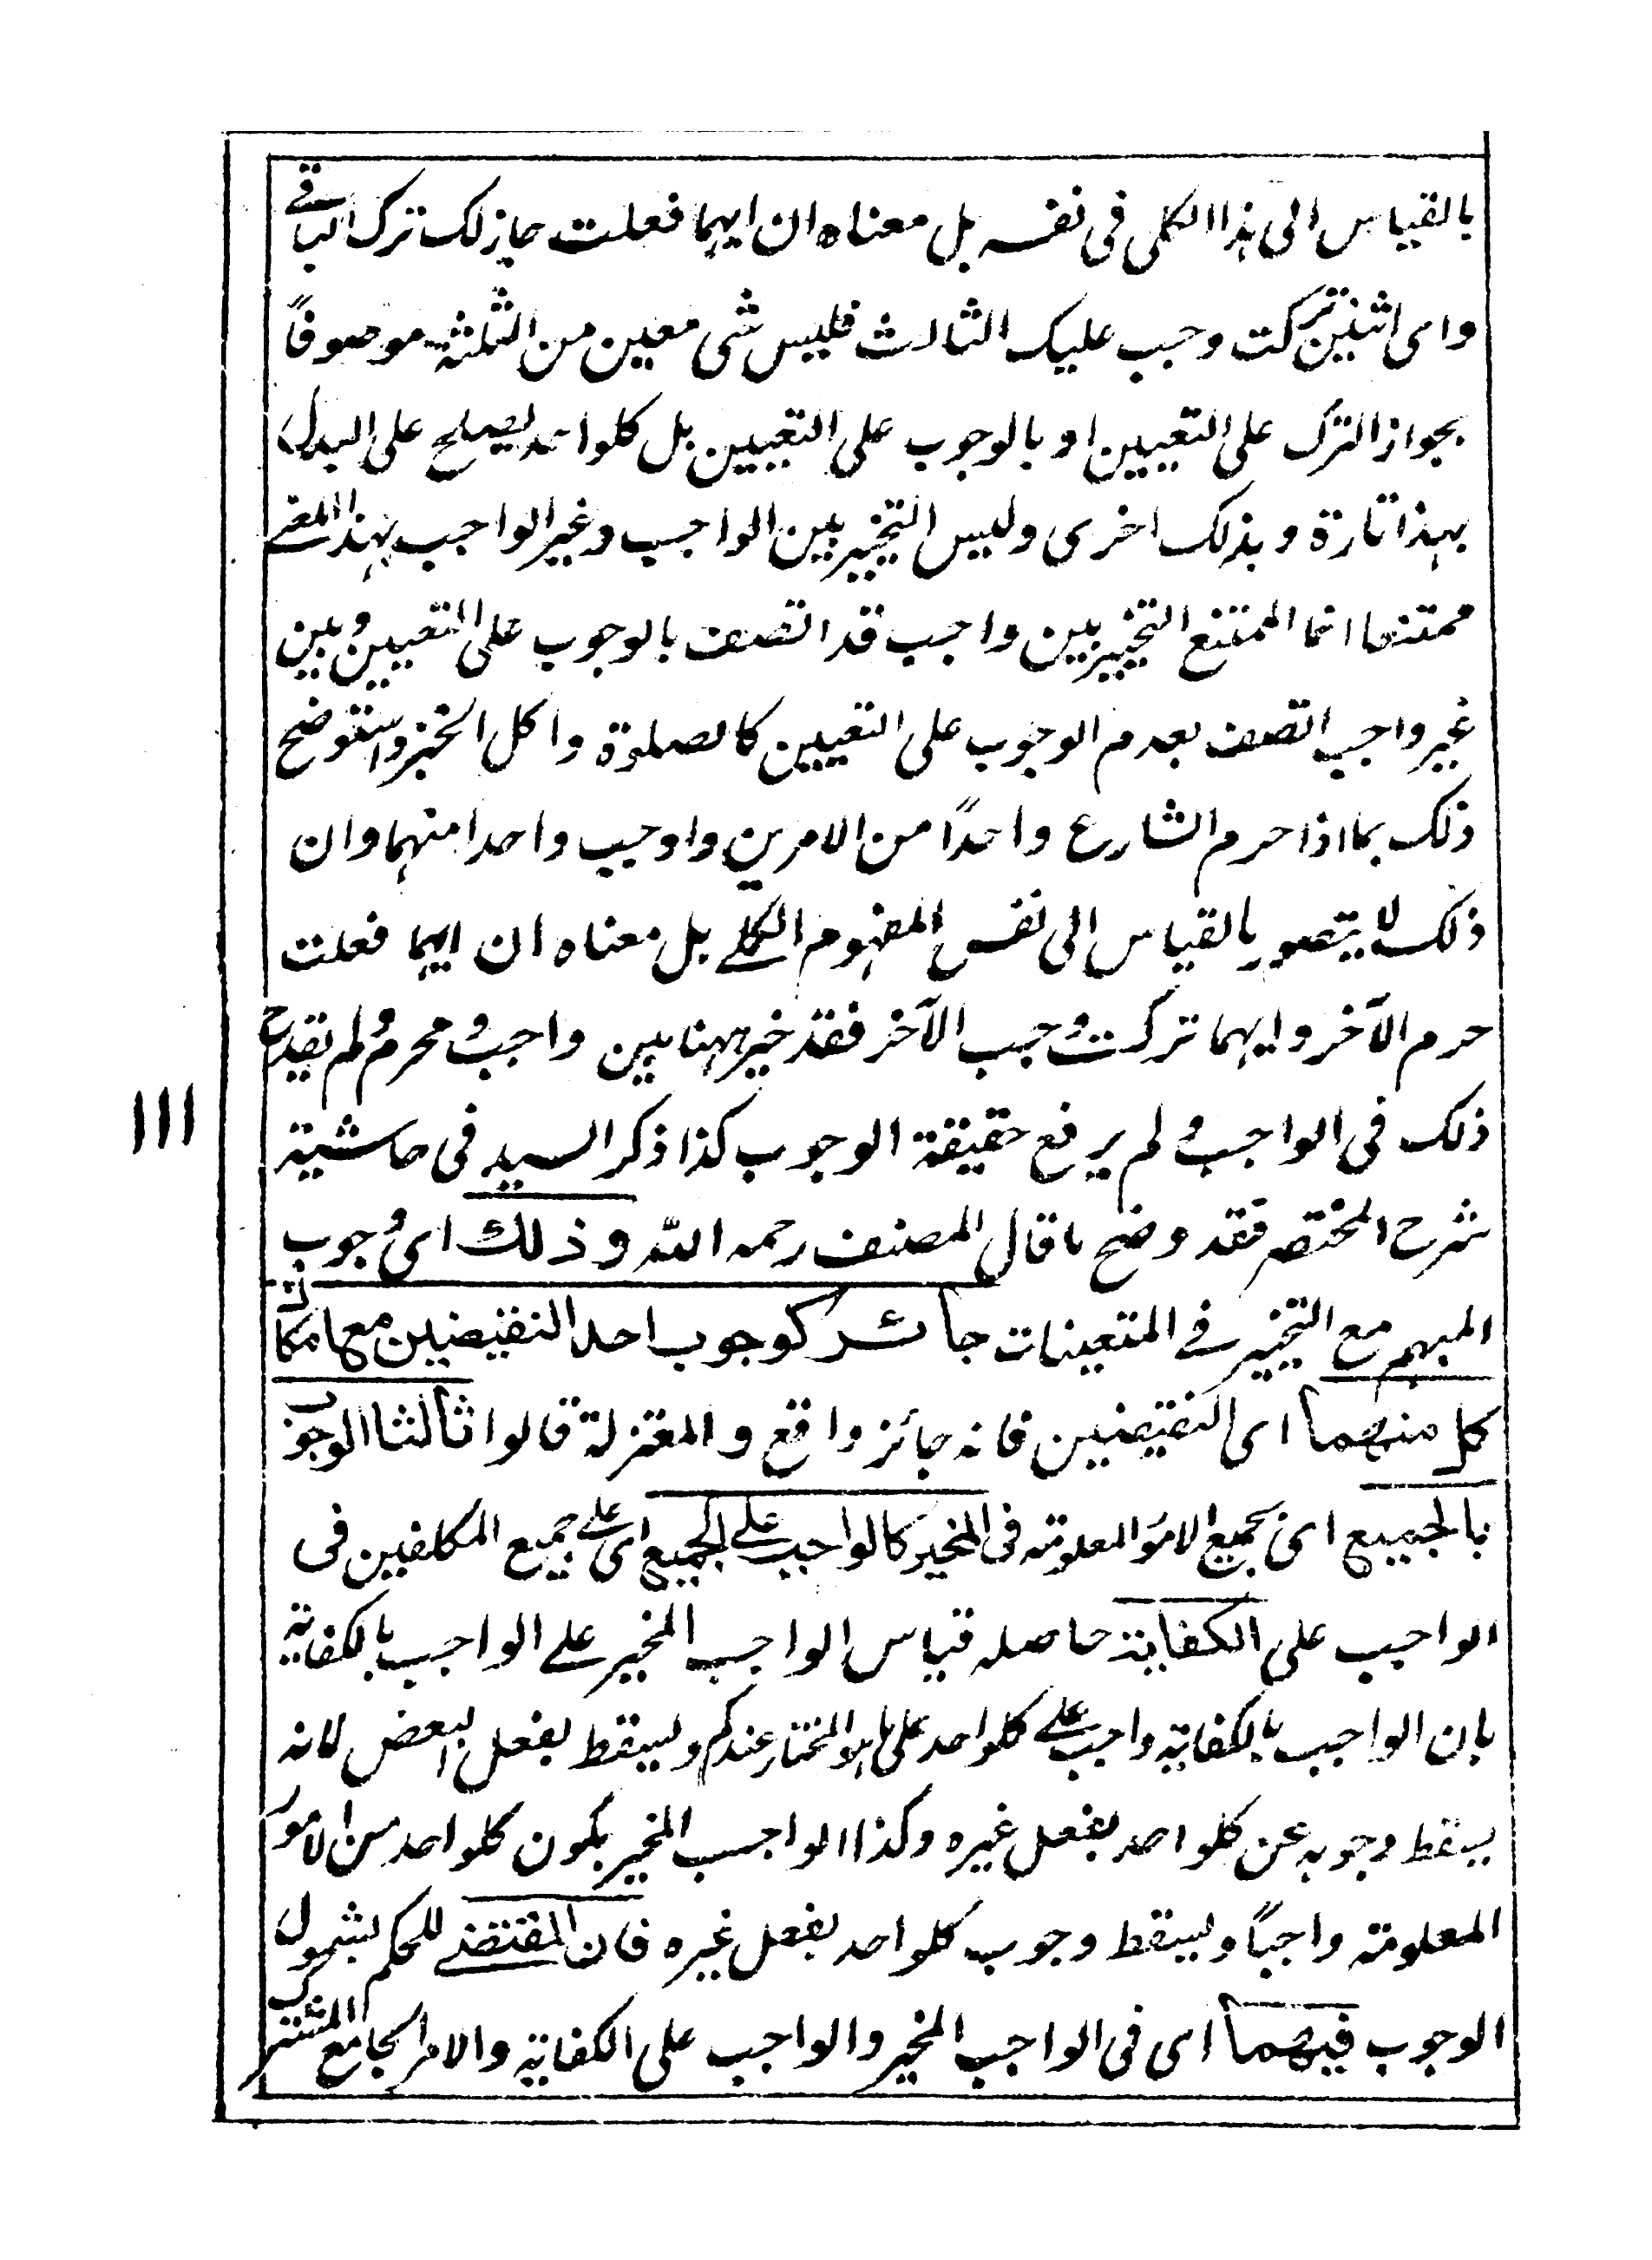 بالقياس الى هذا الكلى فى نفسه بل معناه ان ايهما فعلت جاز لك ترك الباقى
واى اثنين تركت وجب عليك الثالث فليس شى معين من الثلثة موصوفاً
بجواز الترك على التعيين او بالوجوب على التعيين بل كلواحد يصلح على البدل
بهذا تارة و بذلك اخرى وليس التخيير بين الواجب وغير الواجب بهذا المعنى
ممتنعا انما الممتنع التخيير بين واجب قد اتصف بالوجوب على التعيين وبين
غير واجب اتصف بعدم الوجوب على التعيين كالصلوة واكل الخبز واستوضح
ذلك بما اذا حرم الشارع واحداً من الامرين واوجب واحدا منهما وان
ذلك لا يتصور بالقياس الى نفس المفهوم الكلى بل معناه ان ايهما فعلت
حرم الآخر وايهما تركت وجب الآخر فقد خير ههنا بين واجب ومحرم ولم يقدح
ذلك فى الواجب ولم يرفع حقيقة الوجوب كذا ذكر السيد فى حاشية
شرح المختصر فقد وضح ما قال المصنف رحمه الله وذلك اى وجوب
المبهم مع التخيير فى المتعينات جائز كوجوب احد النقيضين مع امكان
كل منهما اى النقيضين فانه جائز واقع و المعتزلة قالوا ثالثا الوجوب
بالجميع اى بجميع الامور المعلومة فى المخير كالواجب على الجميع اى على جميع المكلفين فى
الواجب على الكفاية حاصله قياس الواجب المخير على الواجب بالكفاية
بان الواجب بالكفاية واجب على كلواحد على ما هو المختار عندكم ويسقط بفعل البعض لانه
يسقط وجوبه عن كلواحد بفعل غيره وكذا الواجب المخير بكون كلواحد من الامور
المعلومة واجباً ويسقط وجوب كلواحد بفعل غيره فان المقتضى للحكم بشمول
الوجوب فيهما اى فى الواجب المخير والواجب على الكفاية والامر الجامع المشترك
١١١